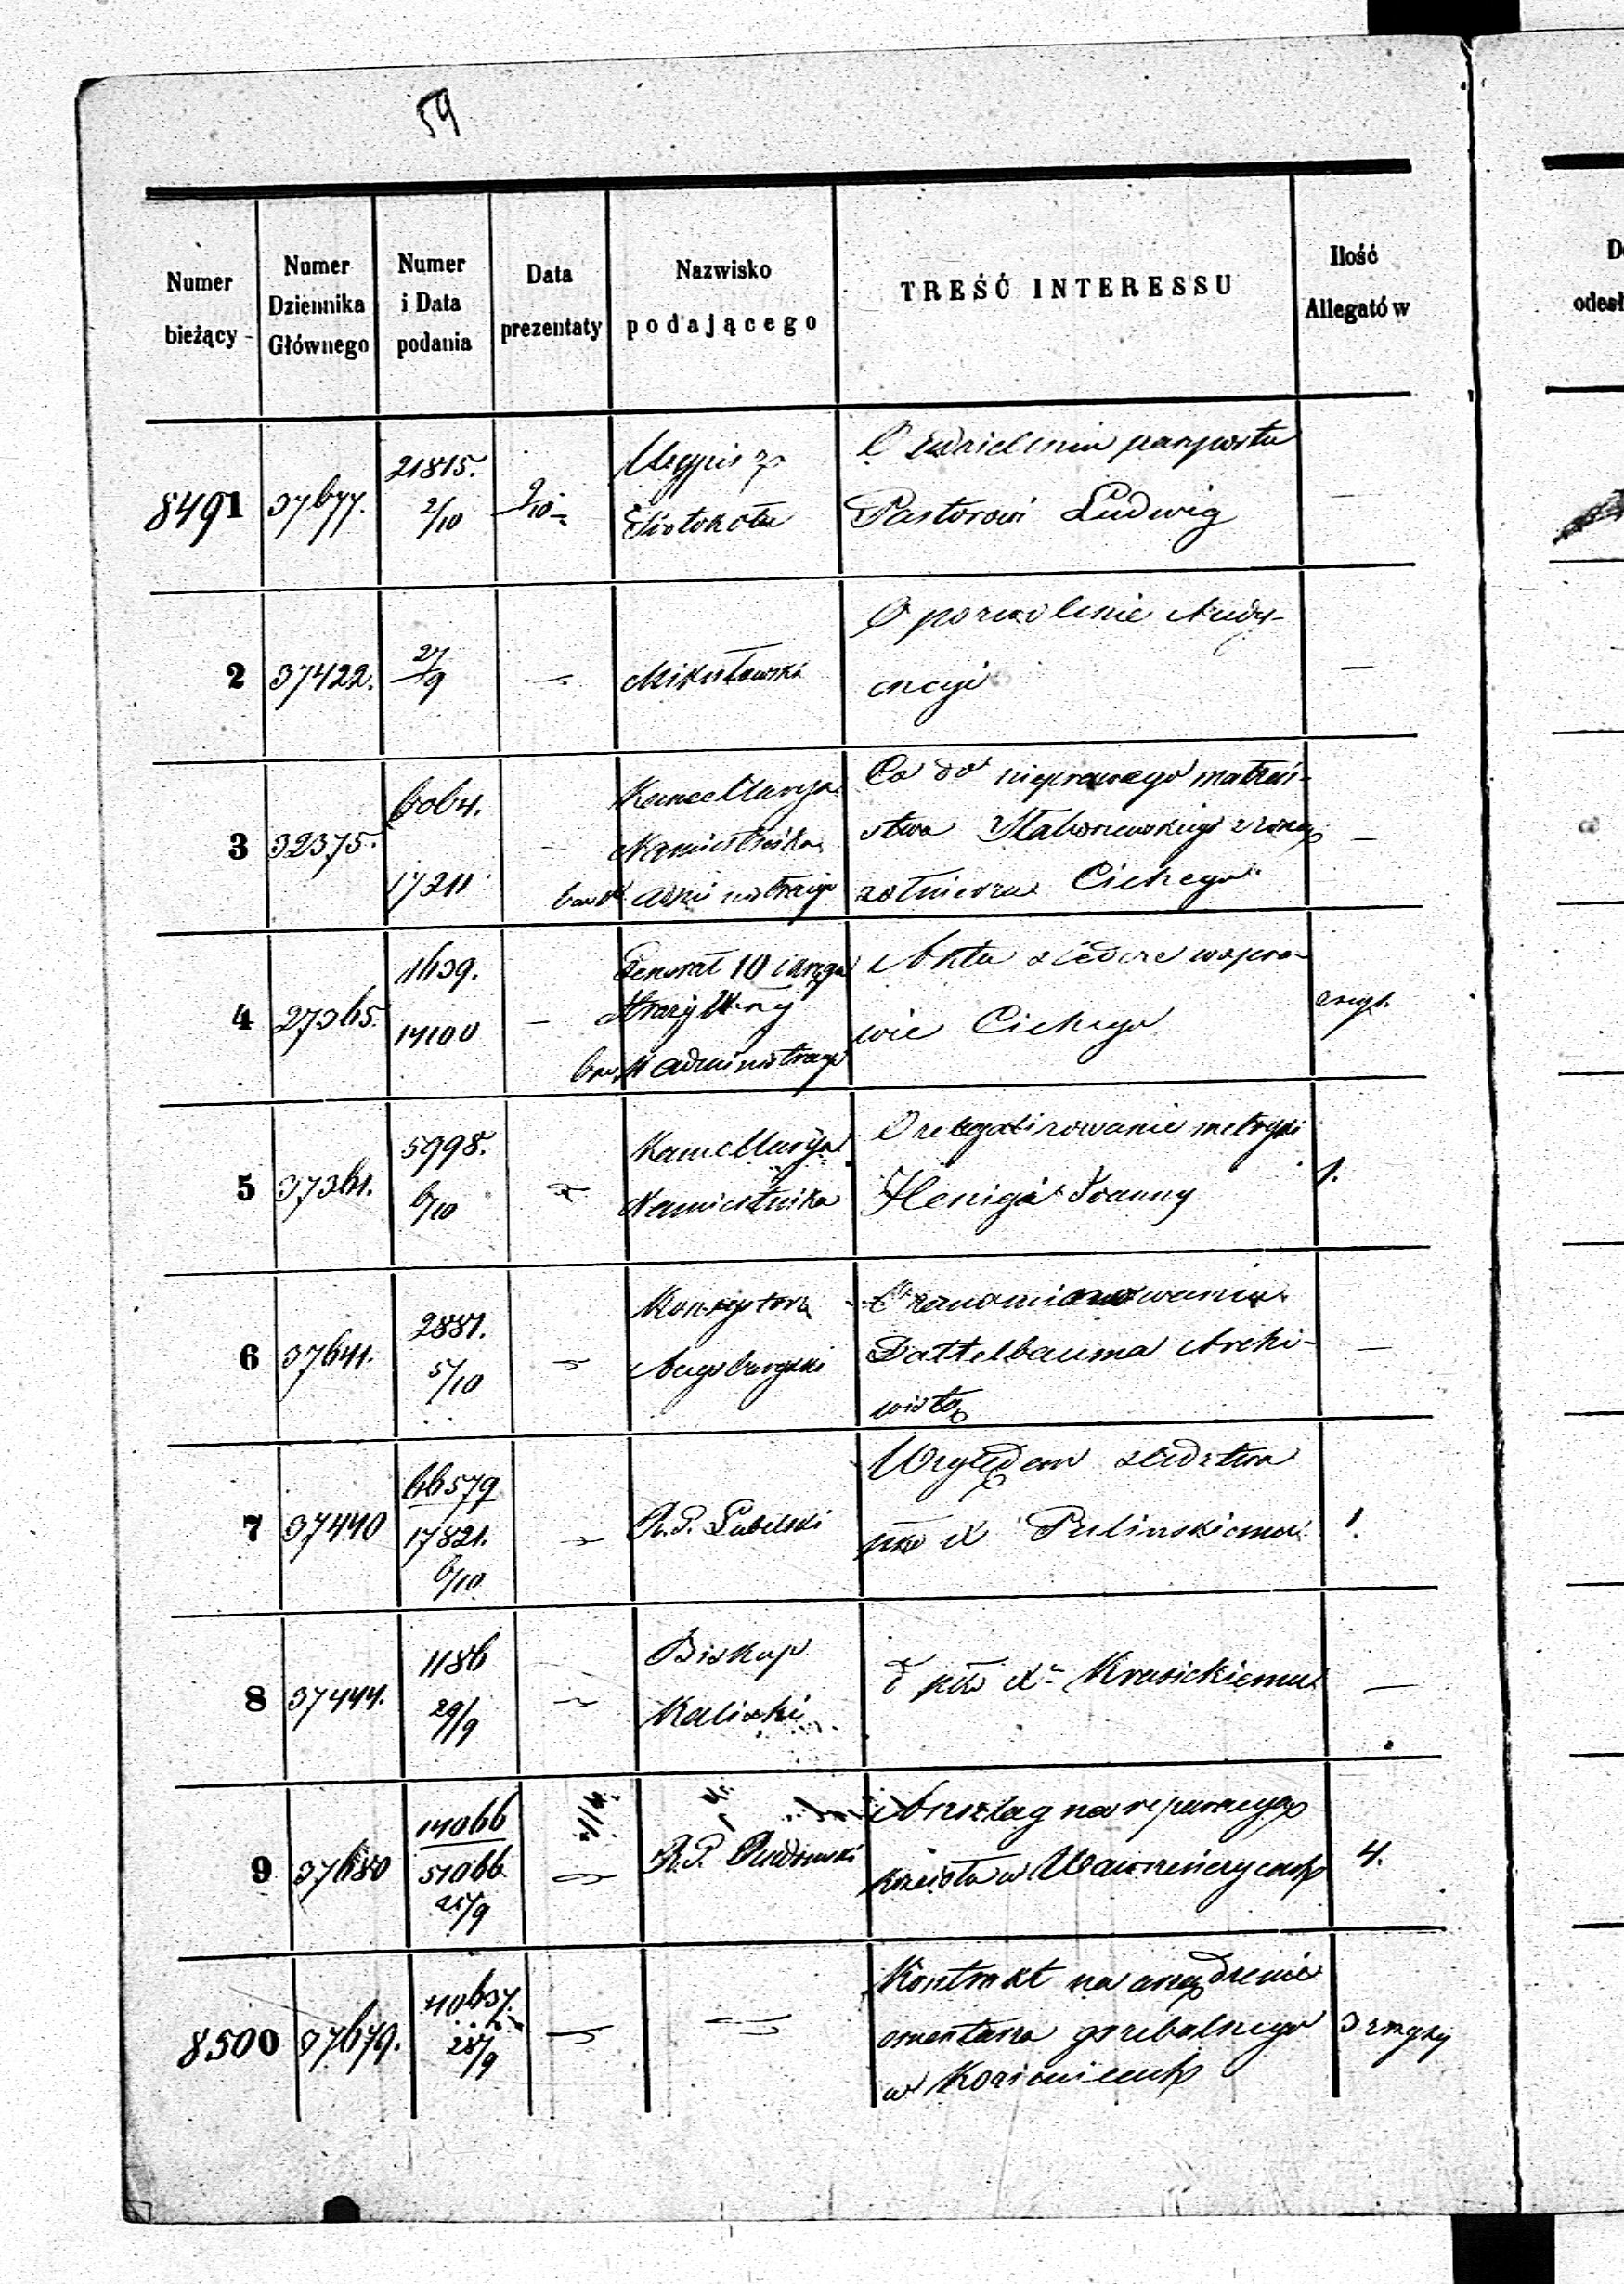 59
Numer bieżący
Numer Dziennika Głównego
Numer i Data podania
Data prezentaty
Nazwisko podającego
TREŚĆ INTERESSU
Ilość Allegatów
8491 37677. 21815. 2/10 9/10 Wypis z Protokołu
O udzielenie paszportu
Pastorowi Ludwig —
2 37422. 27/9 — Mikułowski
O pozwolenie Audy-
encyi —
3 32375. 6064. 17211 — Kancellarya Namiestnika
administracyi
Co do nieprawego małżeń-
stwa z żoną
żołnierza Cichego —
4 27365. 1639. 14100 — Generał
administracyi
Akta śledcze w spra-
wie Cichego
5 37361. 5998. 6/10 Kancellarya Namiestnika
O zalegalizowanie metryki
Heniga Joanny 1.
6 37641. 2881. 5/10 Konsystorz Augsburgski
O zanominowaniu
Dattelbauma Archi-
wistą —
7 37440 66579 17821. 6/10 R. G. Lubelski
Względem śledztwa
pko X Pulinskiemu 1.
8 37444. 1186 29/9 Biskup Kaliski
pko X Krasickiemu —
9 37680 14066 51066 25/9 R. G. Radomski
Anszlag na reparacyą
kościoła w Wawrzeńczycach 4.
8500 37679. 40637. 28/9
Kontrakt na urządzenie
cmentarza grzebalnego
w Kozienicach